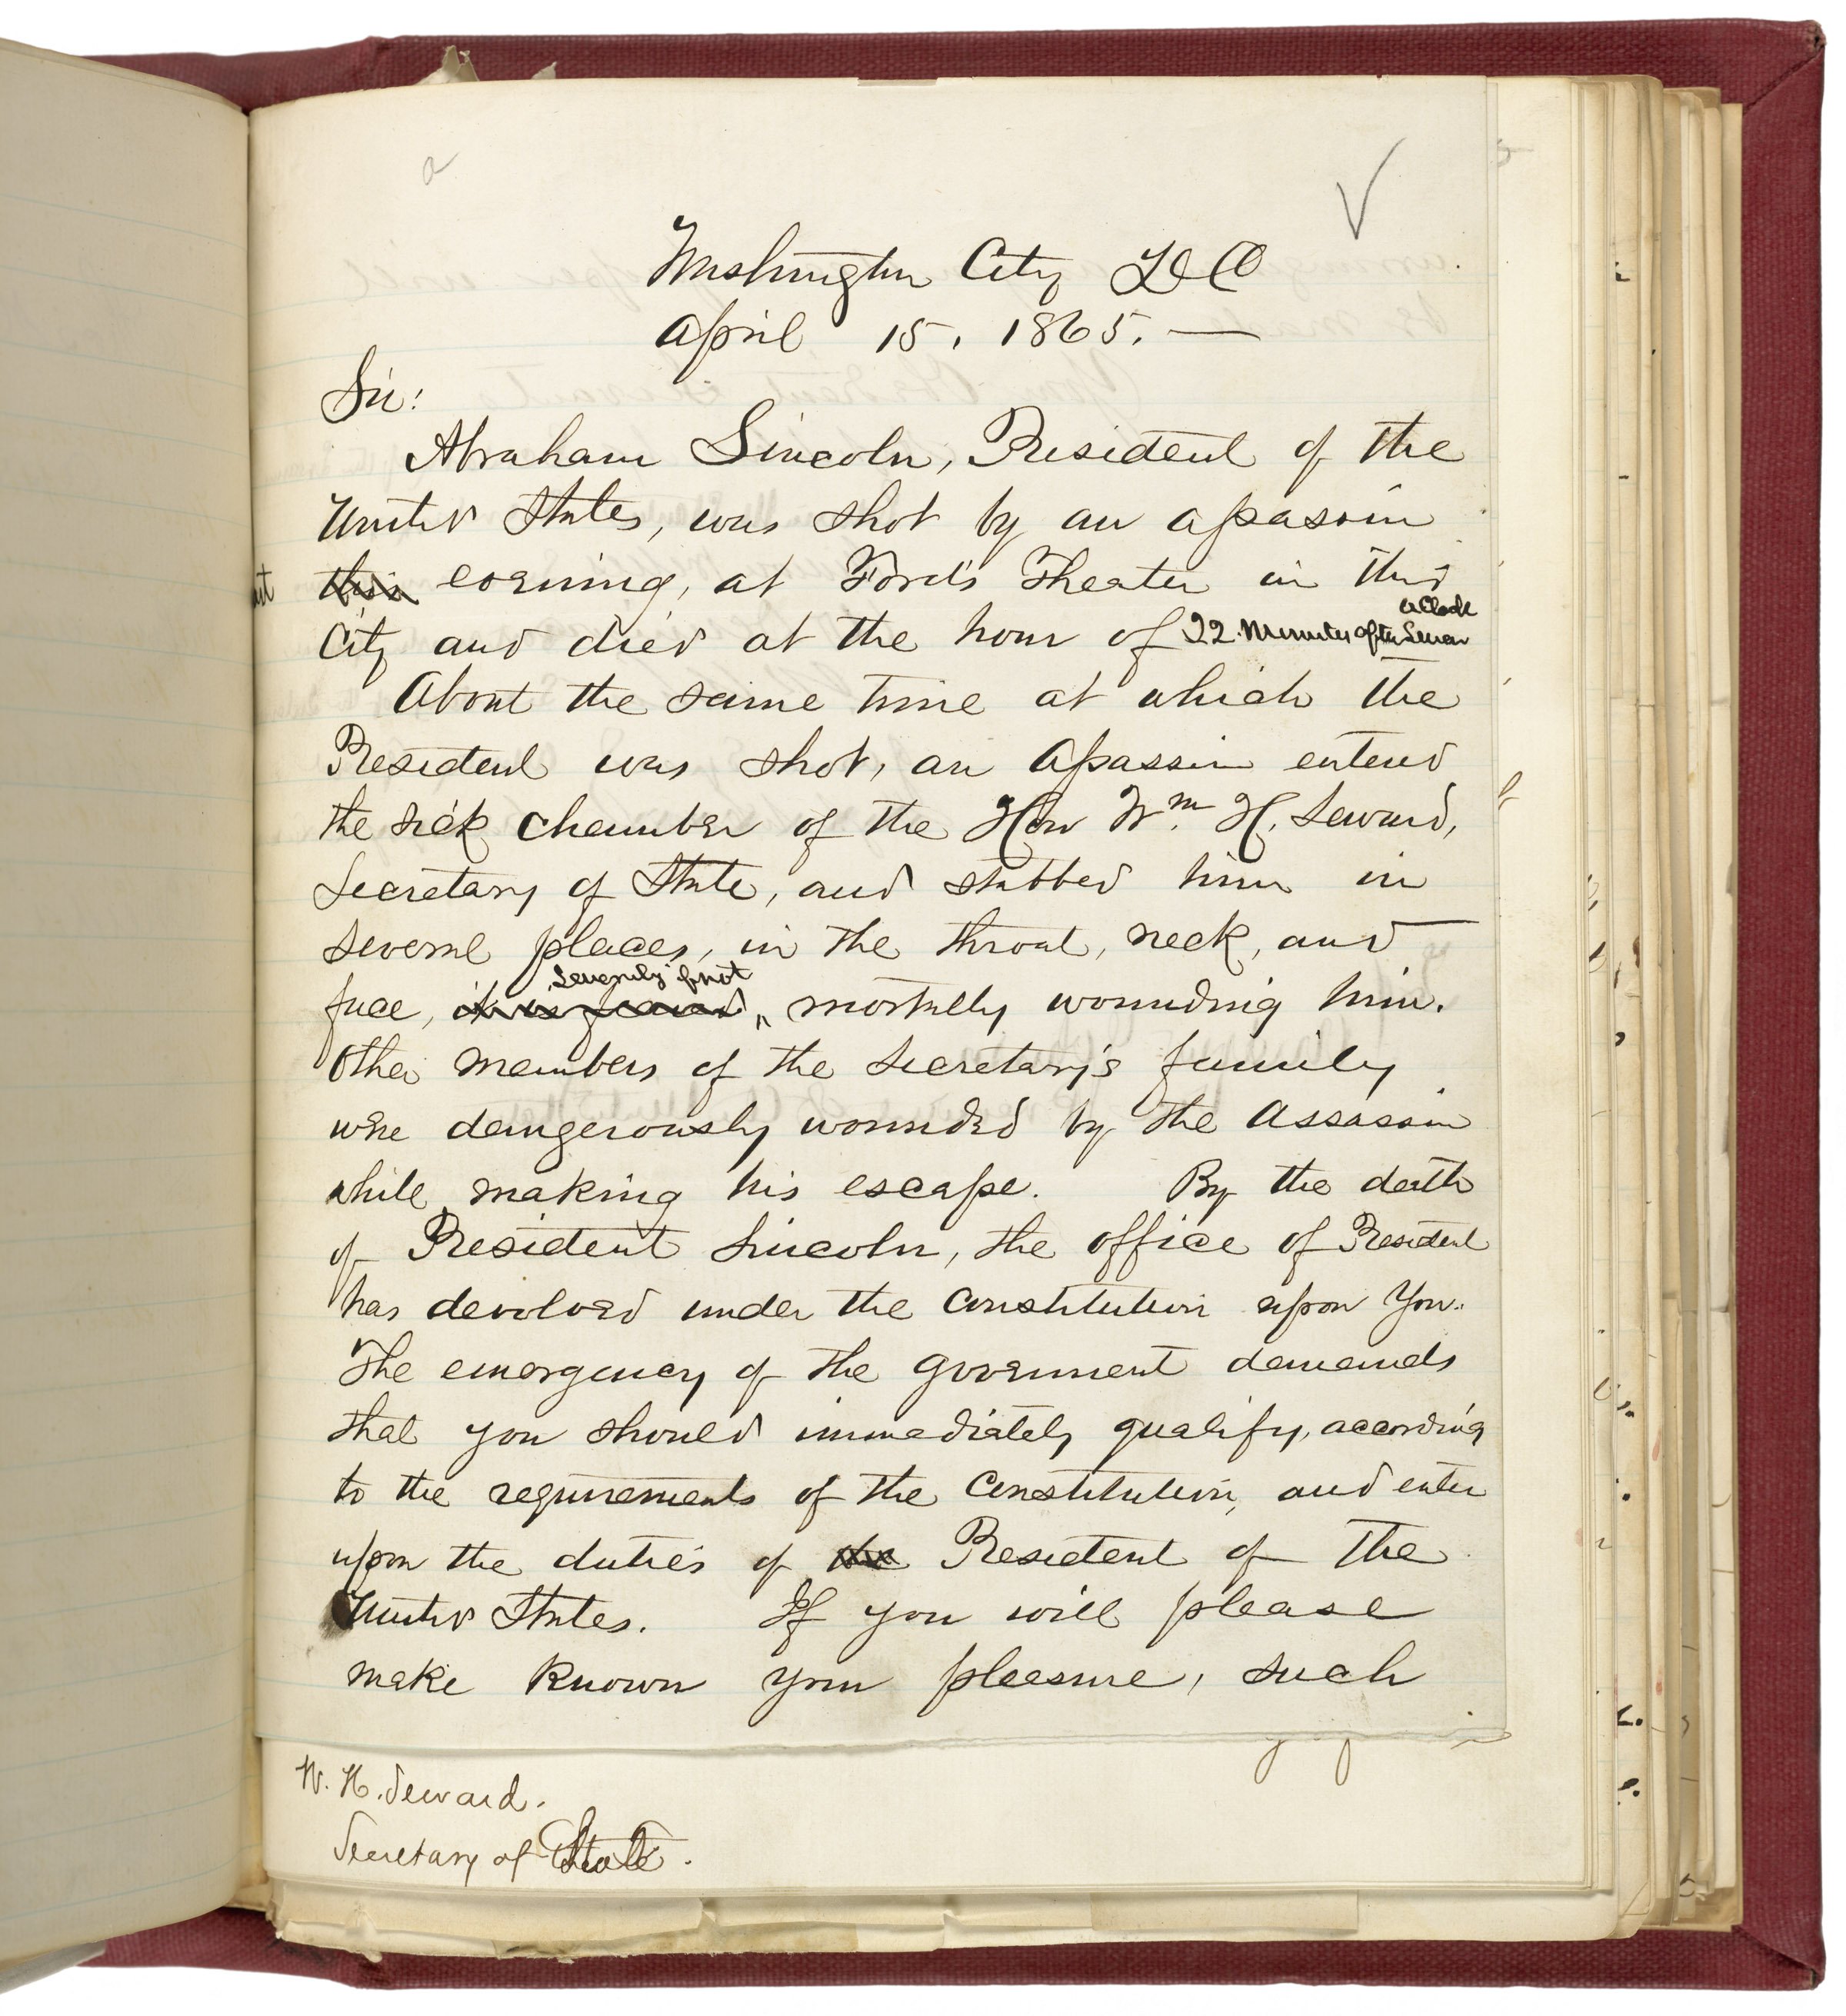 a
Washington City D C
April 15, 1865. —
Sir:
Abraham Lincoln, President of the
United States, was shot by an assassin
this evening, at Ford's Theater in this
O'Clock
City and died at the hour of 22 Minutes after Seven
About the same time at which the
President was shot, an assassin entered
the sick chamber of the Hon Wm. H. Seward,
Secretary of State, and stabbed him in
several places, in the throat, neck, and
severely if not
face, it is feared, mortally wounding him.
Other members of the Secretary's family
were dangerously wounded by the assassin
while making his escape. By the death
of President Lincoln, the office of President
has devolved under the Constitution upon You.
The emergency of the government demands
that you should immediately qualify, according
to the requirements of the Constitution, and enter
upon the duties of the President of the
United States. If you will please
make known your pleasure, such
W. H. Seward.
Secretary of State.